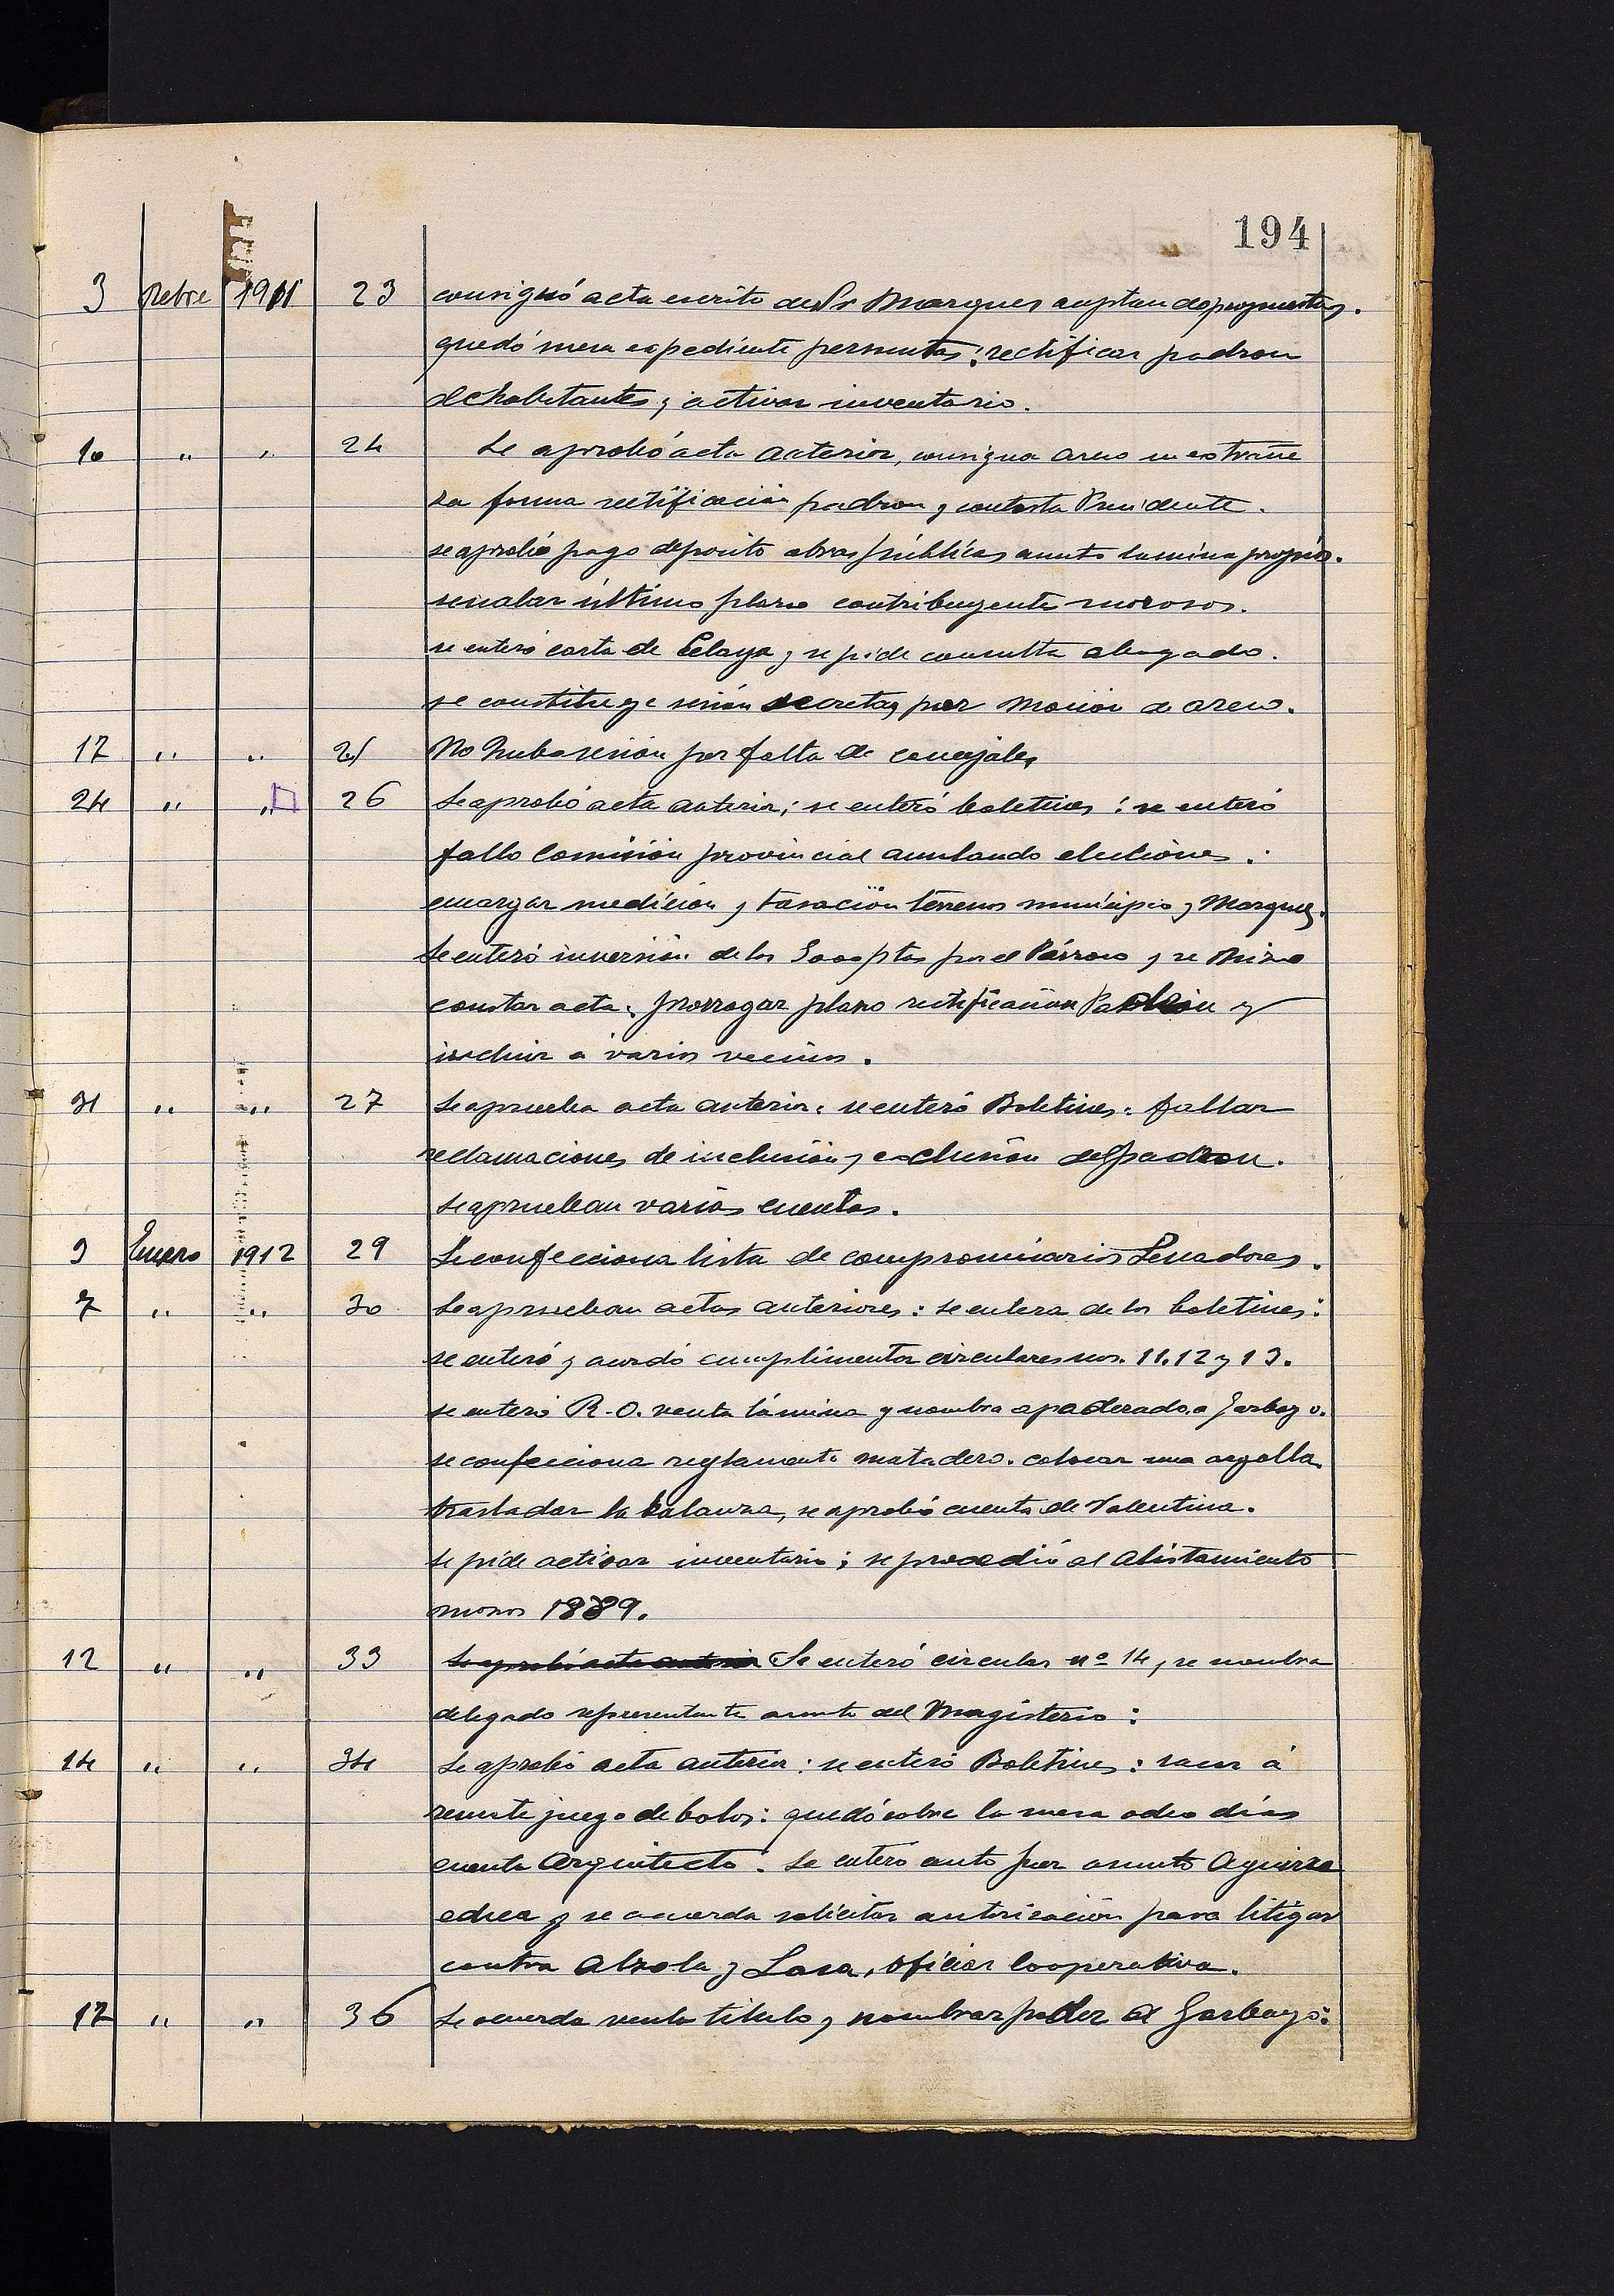 194
3 Dbre 1911 23 consignó acta escrito del Sr Marques aceptando propuestas.
quedó mesa expediente permutas; rectificar padron
de habitantes; activar inventario.
10 " " 24 Se aprobó acta anterior, consigna Areso su extrañe
za forma rectificación padron y contesta Presidente.
se aprobó pago deposito obras públicas asunto lamina propios.
senalar último plazo contribuyente morosos.
se enteró carta de Celaya y se pide consulta abogado.
se constituye sesión secreta, por moción de Areso.
17 " " 25 No hubo sesión por falta de concejales
24 " " 26 Se aprobó acta anterior; se enteró boletines: se enteró
fallo Comisión provincial anulando elecciones:
encargar medición y tasación terrenos municipio y Marques.
Se enteró inversión de las 3000 ptas por el Párroco y se hizo
constar acta; prorrogar plazo rectificación Padrón y
incluir a varios vecinos.
31 " " 27 Se aprueba acta anterior: se enteró Boletines: fallar
reclamaciones de inclusión y exclusión del padron.
Se aprueban varias cuentas.
3 Enero 1912 29 Se confecciona lista de compromisarios Senadores.
7 " " 30 Se aprueban actas anteriores: se entera de los boletines:
se enteró y acordó cumplimentar circulares nos. 11. 12 y 13.
se enteró R.O. venta lámina y nombra apoderado a Garbayo.
se confecciona reglamento matadero. colocar una argolla.
trasladar la balanza, se aprobó cuenta de Valentina.
se pide activar inventario; se procedió al Alistamiento
mozos 1889.
12 " " 33 Se aprobó acta anterior Se enteró circular nº 14, se nombra
delegado representante asunto del Magisterio:
14 " " 34 Se aprobó acta anterior: se enteró Boletines: sacar á
remate juego de bolos: quedó sobre la mesa ocho días
cuenta Arquitecto. Se entero auto por asunto Aguirre
echea y se acuerda solicitar autorización para litigar
contra Alzola y Lasa, oficiar Cooperativa.
17 " " 36 Se acuerda venta titulo, nombrar poder a Garbayo: